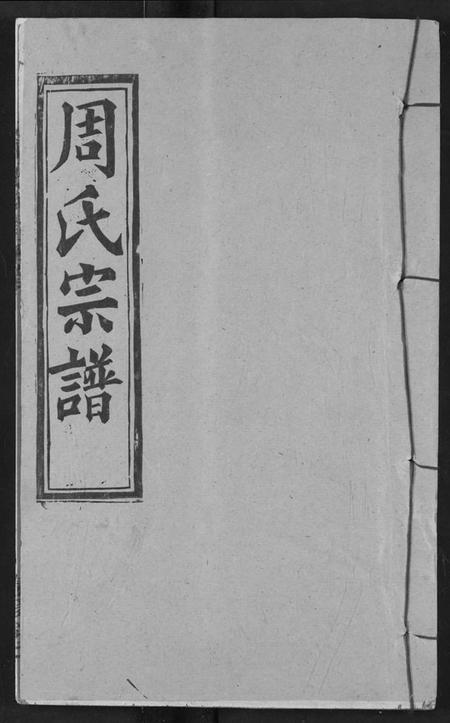 周氏宗譜